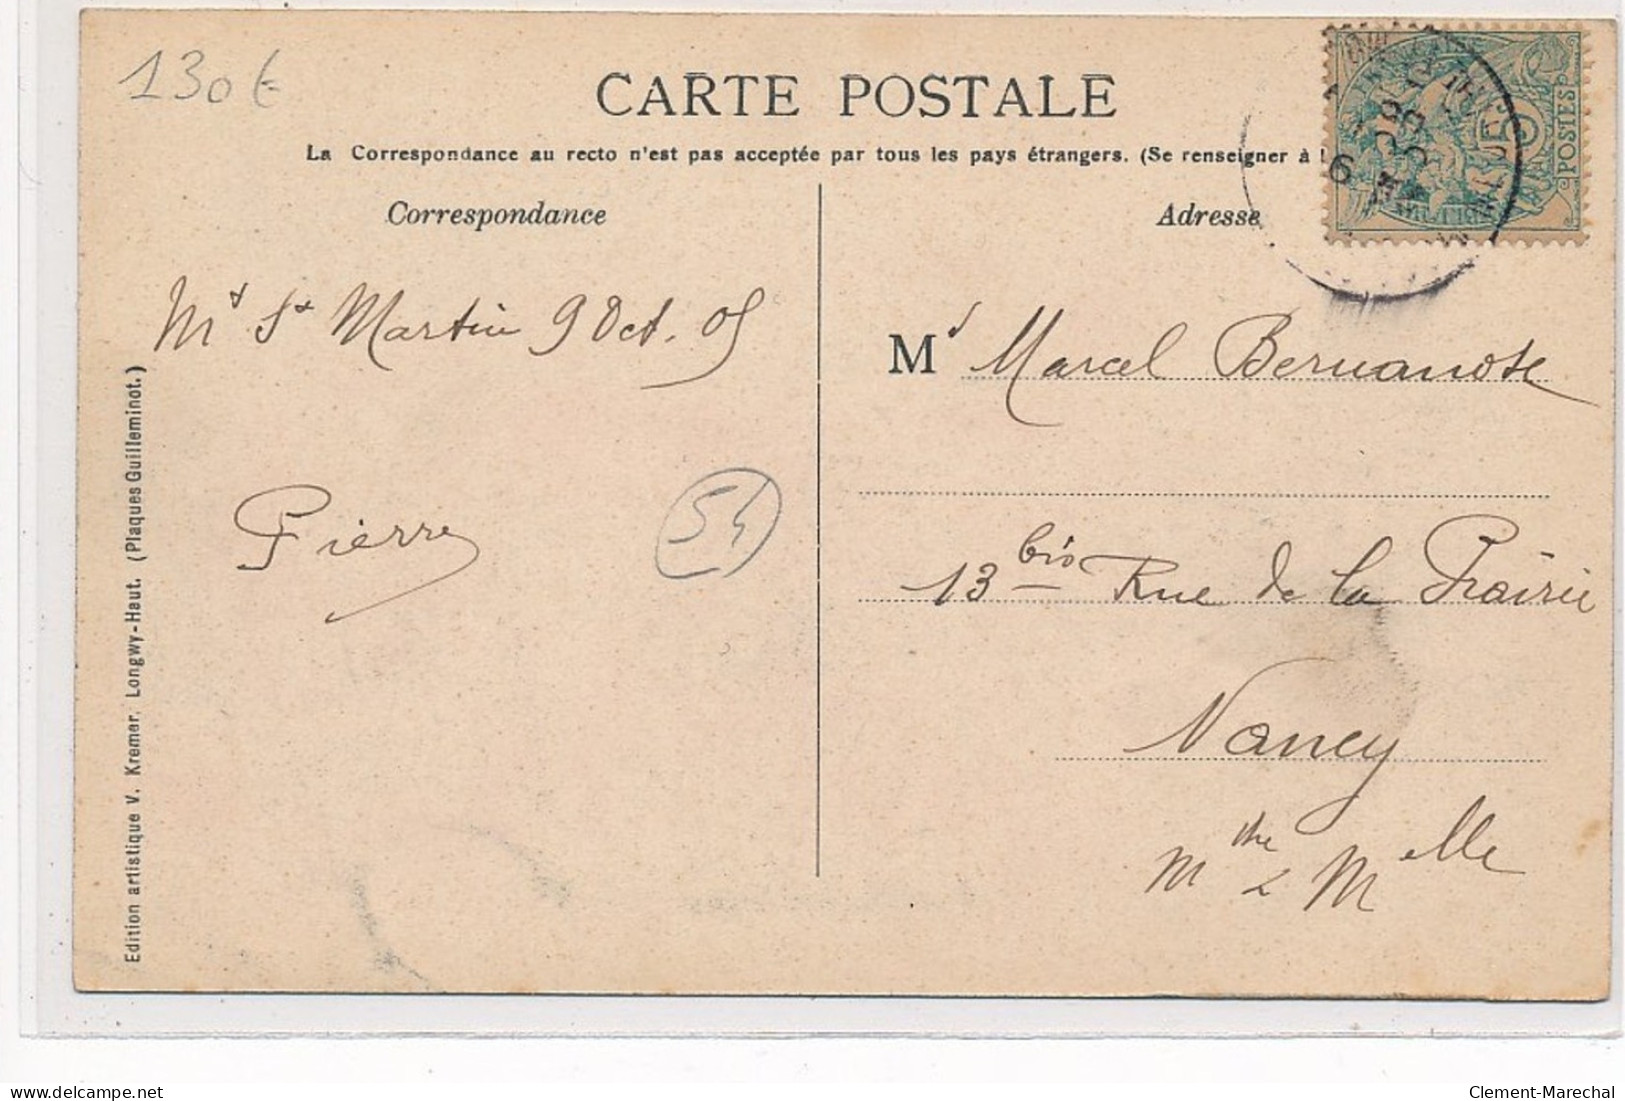 130€
CARTE POSTALE
La Correspondance au recto n'est pas acceptée par tous les pays étrangers. (Se renseigner à
Correspondance
Adresse
POSTES
Mt St Martin 9 Oct. 05
Md Marcel Bernanose
Pierre
54
13 bis Rue de la Prairie
Nancy
Mme & Melle
Edition artistique V. Kremer, Longwy-Haut. (Plaques Guilleminot.)
delcampe.net
Clement-Marechal